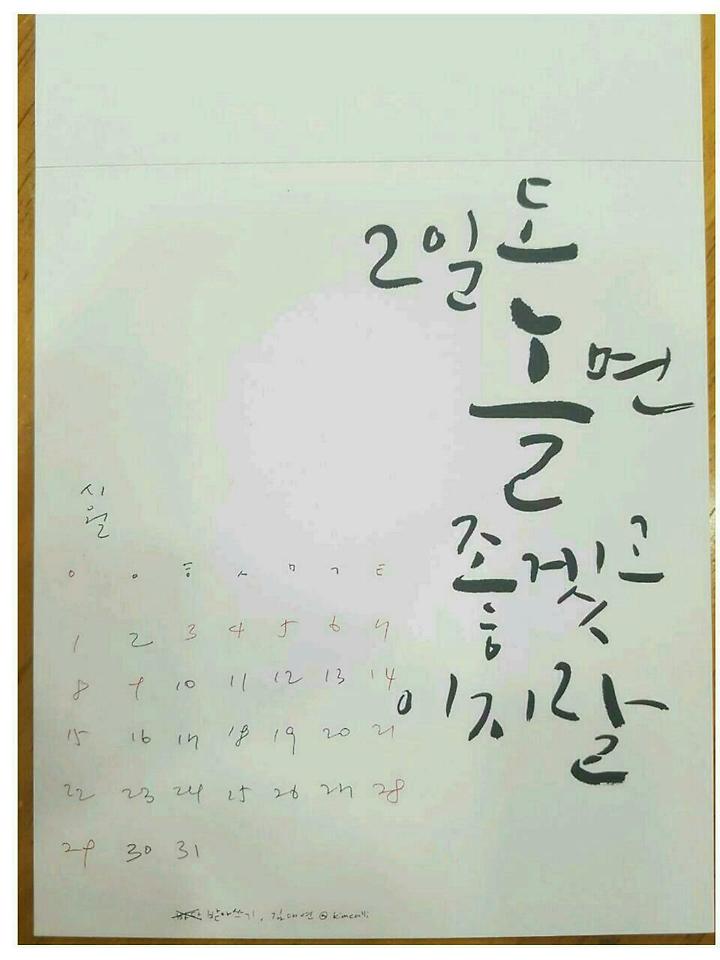 2일도
놀면
좋겟고
이지랄
시
월
ㅇ ㅇ ㅎ ㅅ ㅁ ㄱ ㅌ
1 2 3 4 5 6 7
8 9 10 11 12 13 14
15 16 17 18 19 20 21
22 23 24 25 26 27 28
29 30 31
받아쓰기, 김대연 @kimcalli